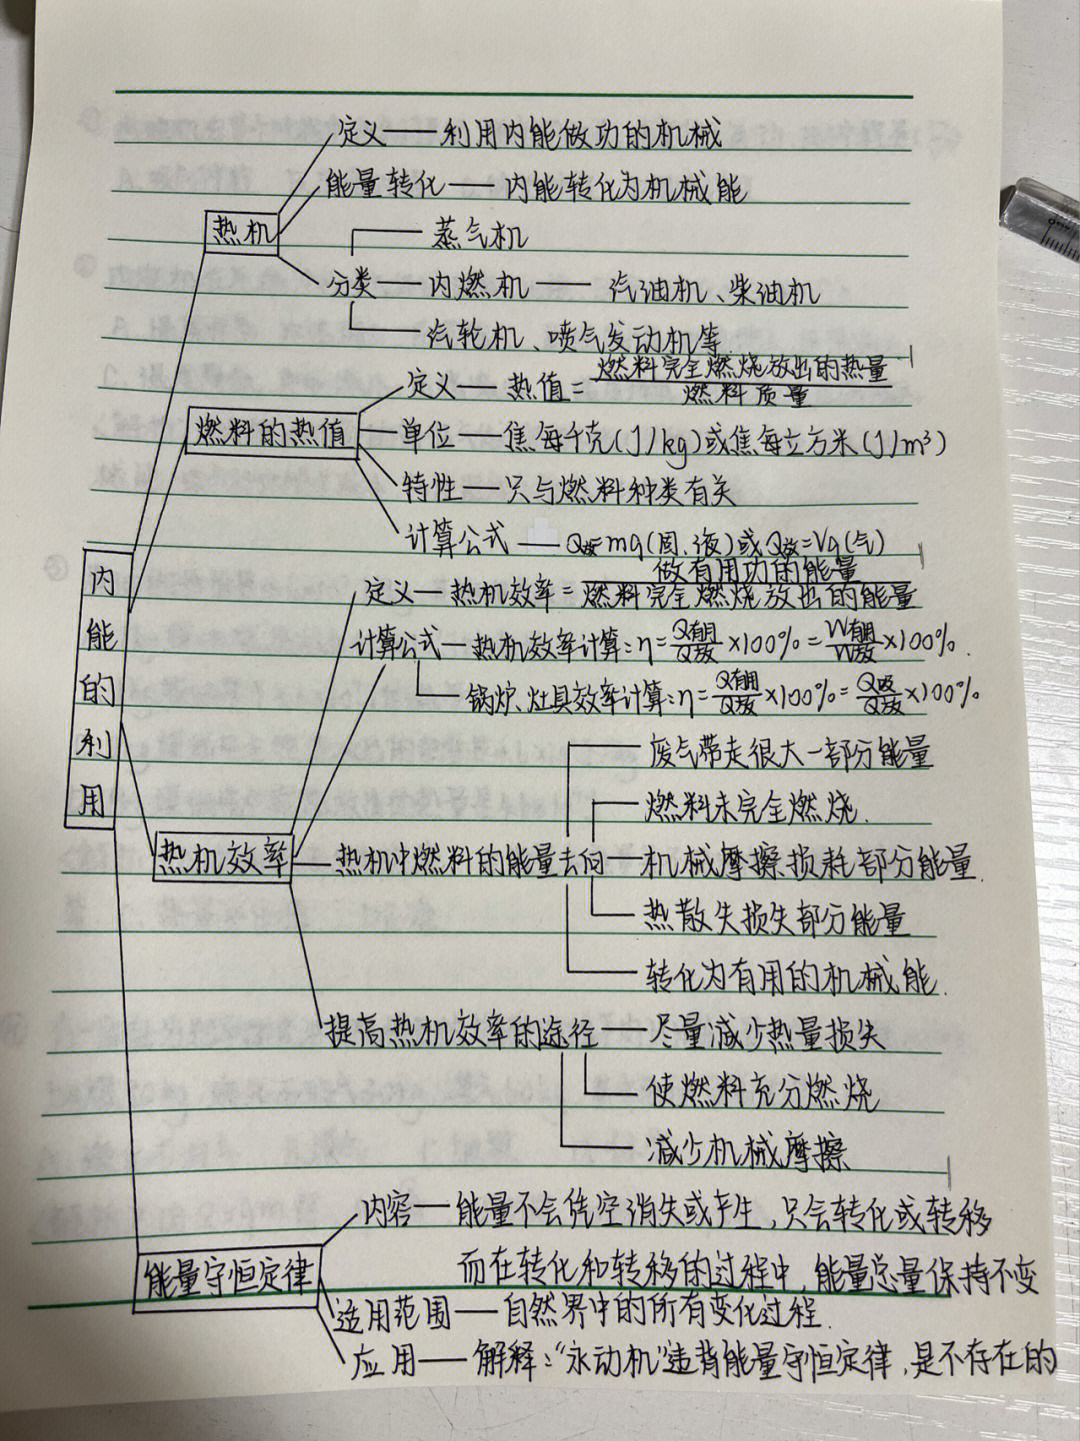 定义——利用内能做功的机械
能量转化——内能转化为机械能
热机
蒸气机
分类——内燃机——汽油机、柴油机
汽轮机、喷气发动机等.
定义——热值=燃料完全燃烧放出的热量/燃料质量
燃料的热值 单位——焦每千克(J/kg)或焦每立方米(J/m³)
特性——只与燃料种类有关
计算公式——Q放=mq(固、液)或Q放=Vq(气)
内能的利用
定义——热机效率=做有用功的能量/燃料完全燃烧放出的能量
计算公式——热机效率计算:η=Q有用/Q放×100%=W有用/W放×100%.
锅炉、灶具效率计算:η=Q有用/Q放×100%=Q吸/Q放×100%
废气带走很大一部分能量
燃料未完全燃烧.
热机效率——热机中燃料的能量去向——机械摩擦损耗部分能量.
热散失损失部分能量
转化为有用的机械能.
提高热机效率的途径——尽量减少热量损失
使燃料充分燃烧
减少机械摩擦
内容——能量不会凭空消失或产生,只会转化或转移
能量守恒定律 而在转化和转移的过程中,能量总量保持不变
适用范围——自然界中的所有变化过程.
应用——解释:“永动机”违背能量守恒定律,是不存在的